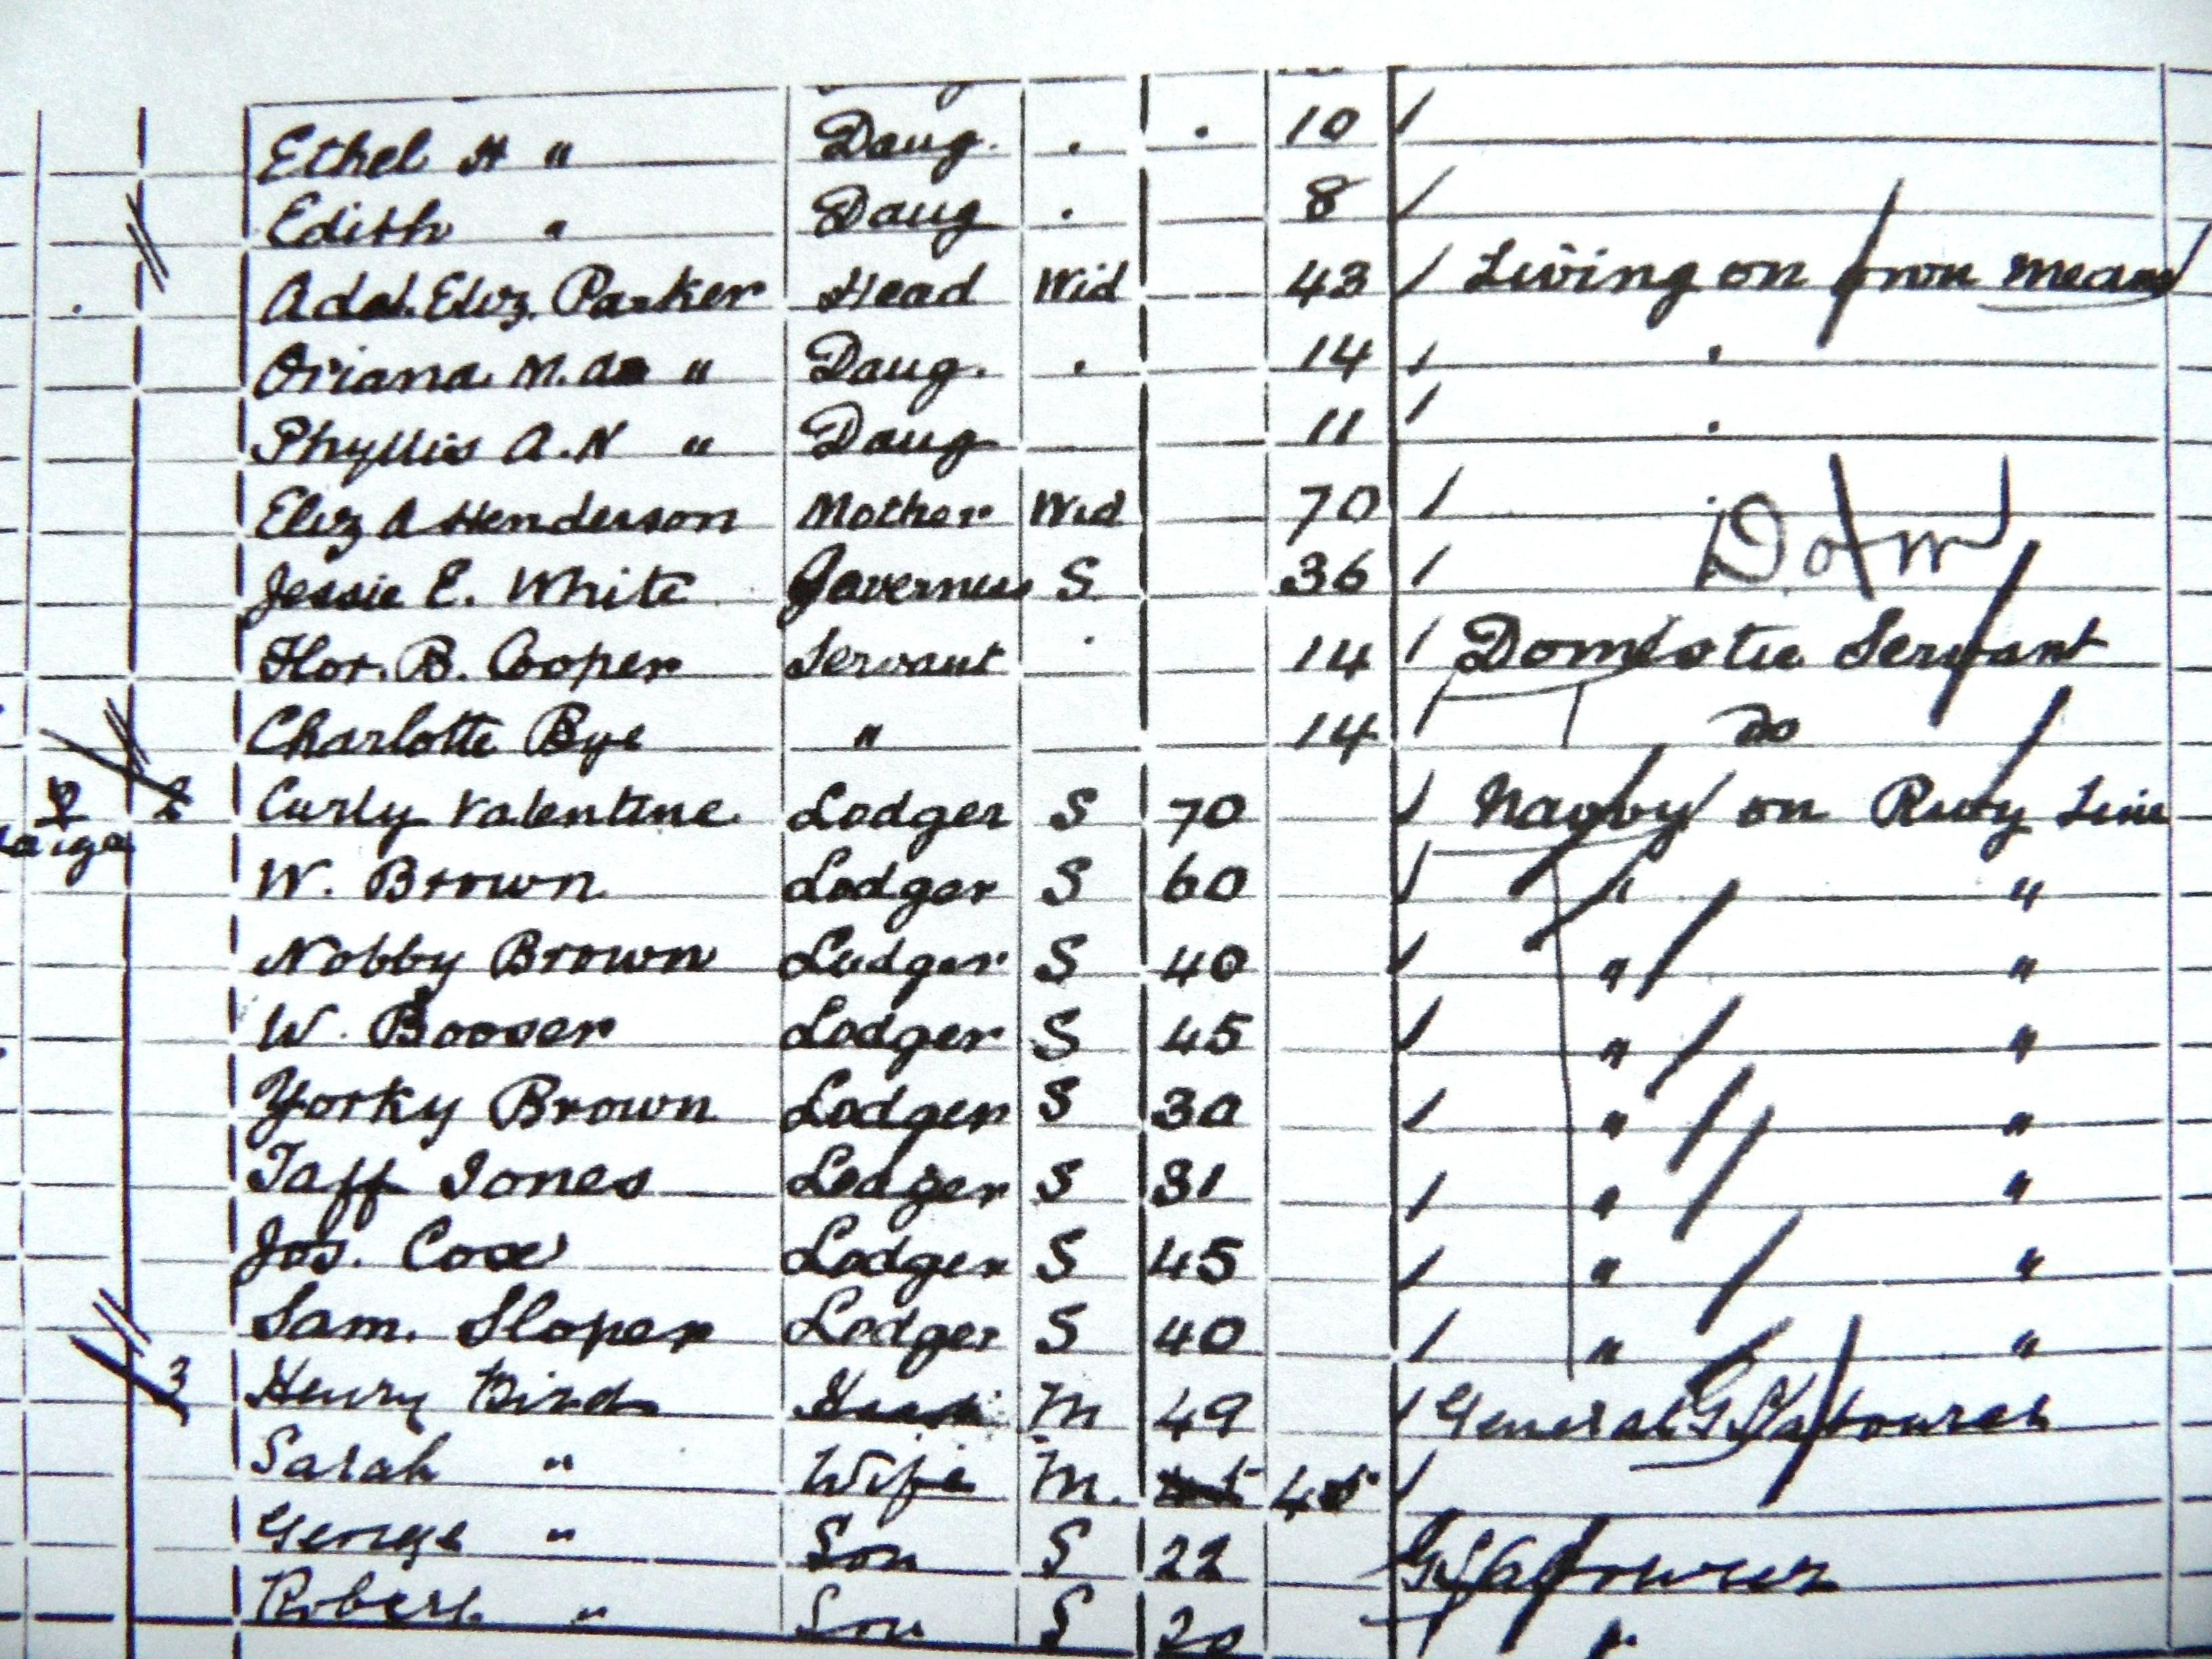 Ethel H " Daug. . . 10
Edith " Daug . 8
Adel. Eliz. Parker Head Wid 43 Living on own means
Oriana. M. " Daug. . 14 .
Phyllis A. N " Daug 11 .
Eliz A Henderson Mother Wid 70
Jessie E. White Governess S 36 Dom
Flor. B. Cooper Servant . 14 Domestic Servant
Charlotte Bye " 14 do
2 Curly Valentine Lodger S 70 Navvy on Rwy Line
W. Brown Lodger S 60 " "
Nobby Brown Lodger S 40 " "
W. Booser Lodger S 45 " "
Yorky Brown Lodger S 30 " "
Taff Jones Lodger S 31 " "
Jos. Cox Lodger S 45 " "
Sam. Sloper Lodger S 40 " "
3 Henry Bird Head M 49 General G Labourer
Sarah " Wife M. 45
George " Son S 22 G Labourer
Robert " Son S 20 "